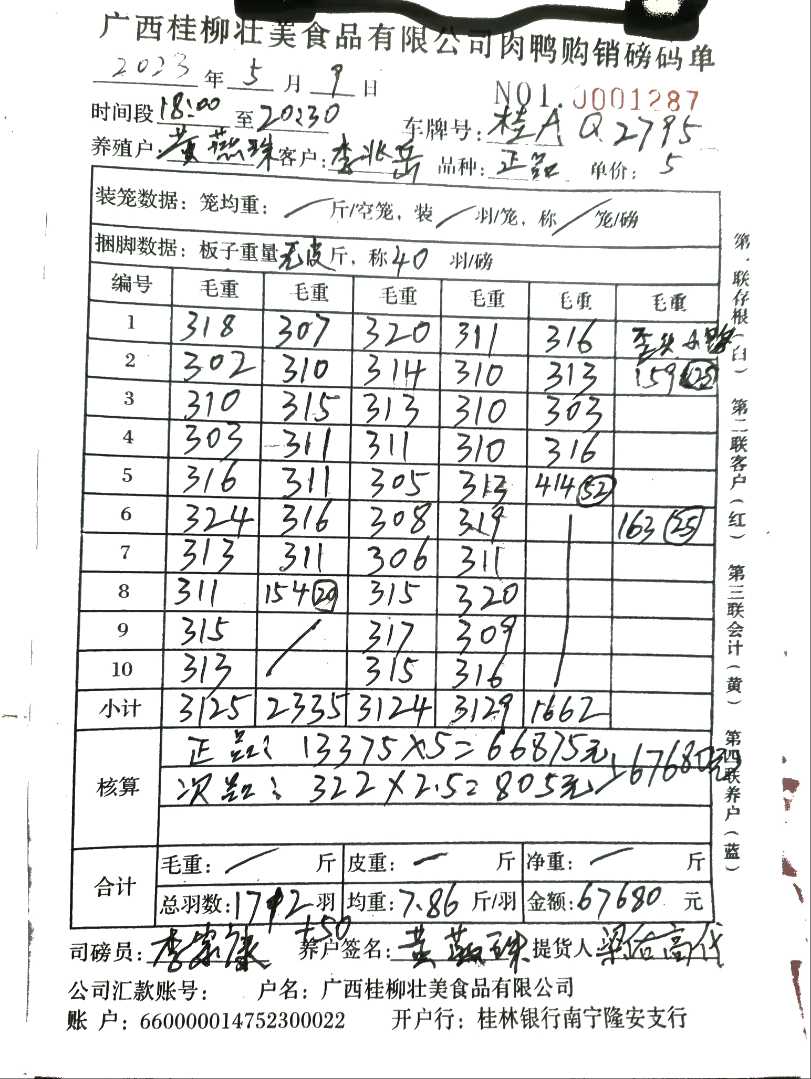 广西桂柳壮美食品有限公司肉鸭购销磅码单
2023 年 5 月 9 日
NO1. J001287
时间段 18:00 至 20:30 车牌号: 桂A Q2795
养殖户: 黄燕珠 客户: 李兆岳 品种: 正品 单价: 5
装笼数据: 笼均重: / 斤/空笼, 装 / 羽/笼, 称 / 笼/磅
捆脚数据: 板子重量 无皮 斤, 称 40 羽/磅
编号 毛重 毛重 毛重 毛重 毛重 毛重
1 318 307 320 311 316
2 302 310 314 310 313 159 (25)
3 310 315 313 310 303
4 303 311 311 310 316
5 316 311 305 313 414 (52)
6 324 316 308 319 163 (25)
7 313 311 306 311
8 311 154 (20) 315 320
9 315 / 317 309
10 313 315 316
小计 3125 2335 3124 3129 1662
核算
正品: 13375×5=66875元
67680元
次品: 322×2.5=805元
合计
毛重: / 斤 皮重: 一 斤 净重: / 斤
总羽数: 1712 羽 均重: 7.86 斤/羽 金额: 67680 元
+50
司磅员: 养户签名: 黄燕珠 提货人
公司汇款账号: 户名: 广西桂柳壮美食品有限公司
账 户: 660000014752300022 开户行: 桂林银行南宁隆安支行
第一联存根(白) 第二联客户(红) 第三联会计(黄) 第四联养户(蓝)